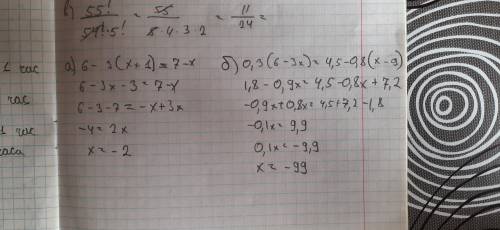 в) 55! / 54! · 5! = 55 / 5 · 4 · 3 · 2 = 11 / 24 =
1 час
час
1 час
часа
а) 6 - 3(x+1) = 7-x
6 - 3x - 3 = 7-x
6-3-7 = -x+3x
-4 = 2x
x = -2
б) 0,3(6-3x) = 4,5-0,8(x-9)
1,8 - 0,9x = 4,5-0,8x + 7,2
-0,9x+0,8x = 4,5+7,2-1,8
-0,1x = 9,9
0,1x = -9,9
x = -99